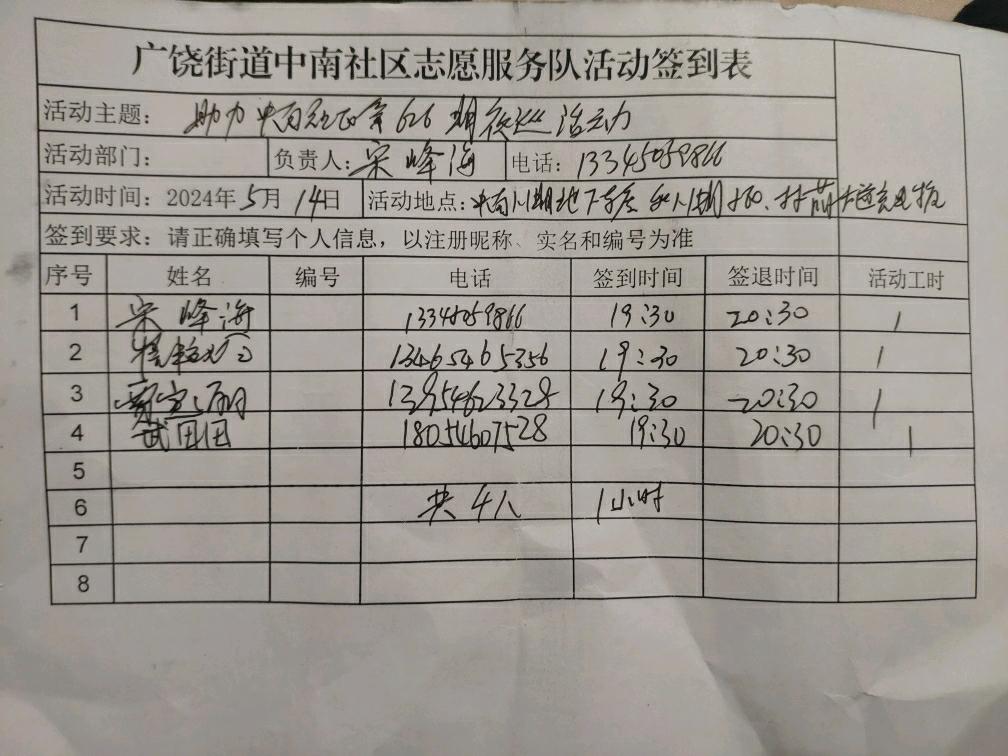 广饶街道中南社区志愿服务队活动签到表
活动主题： 助力中南 第626期夜巡活动
活动部门： 负责人：宋峰海 电话：13345059866
活动时间：2024年5月14日 活动地点：中南 期地下车库
签到要求：请正确填写个人信息，以注册昵称、实名和编号为准
序号 姓名 编号 电话 签到时间 签退时间 活动工时
1 宋峰海 13345059866 19:30 20:30 1
2 13465465356 19:30 20:30 1
3 13954623328 19:30 20:30 1
4 武田田 18054607528 19:30 20:30 1
5
6 共4人 1小时
7
8